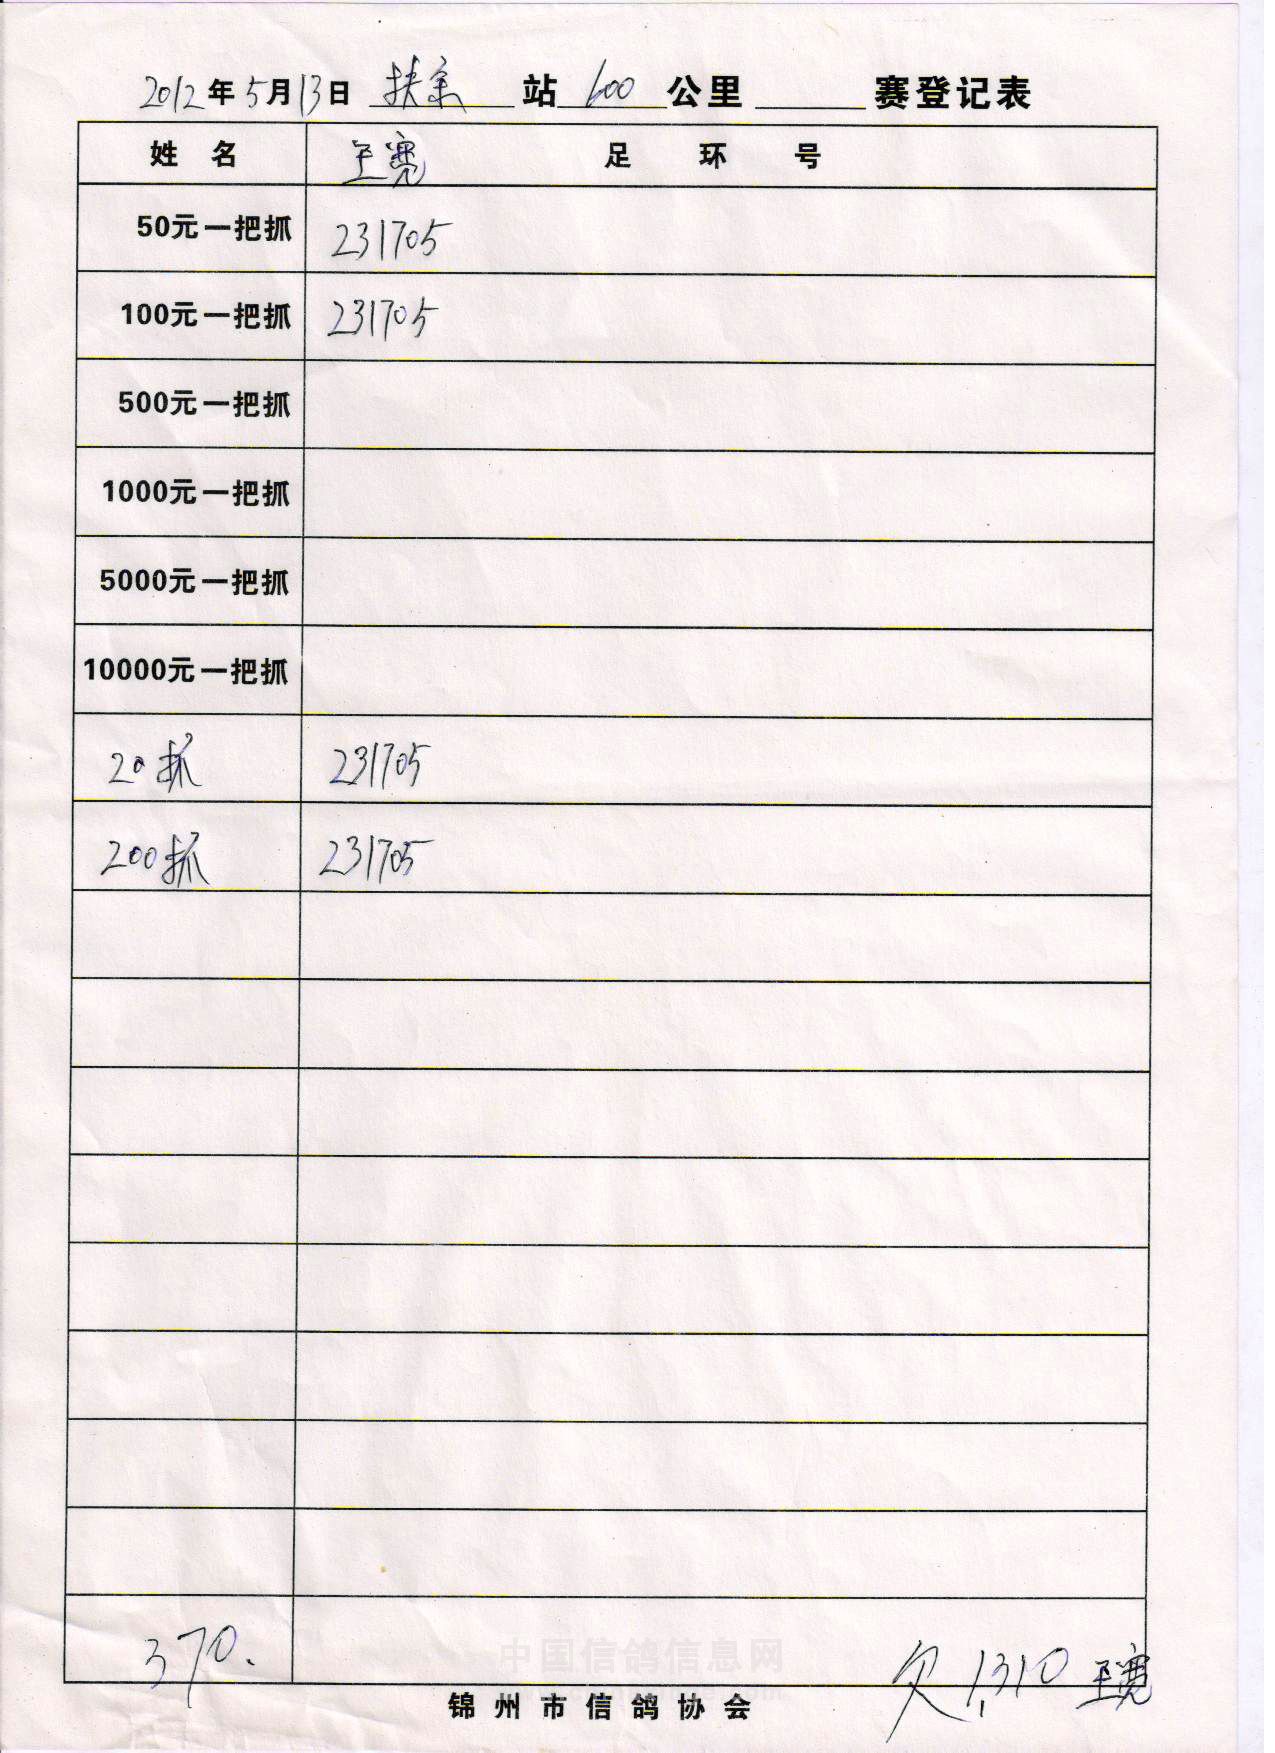 2012年5月13日 扶余 站 600 公里 赛登记表
姓 名 王宽 足 环 号
50元一把抓 231705
100元一把抓 231705
500元一把抓
1000元一把抓
5000元一把抓
10000元一把抓
20抓 231705
200抓 231705
370.
中国信鸽信息网
欠1,310 王宽
锦州市信鸽协会